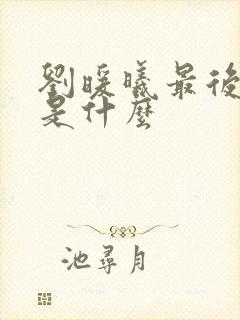 劉暖曦最後
是什麼
池尋月